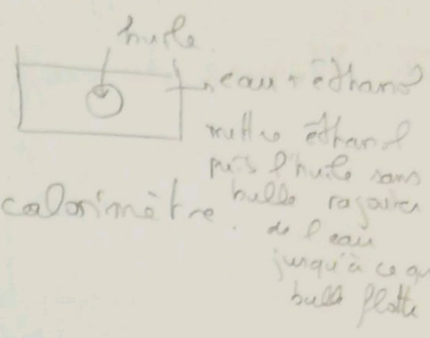 huile
eau + éthanol
mettre éthanol
puis l'huile sans
bulle rajouter
de l'eau
jusqu'à ce qu
bulle flotte
calorimètre.